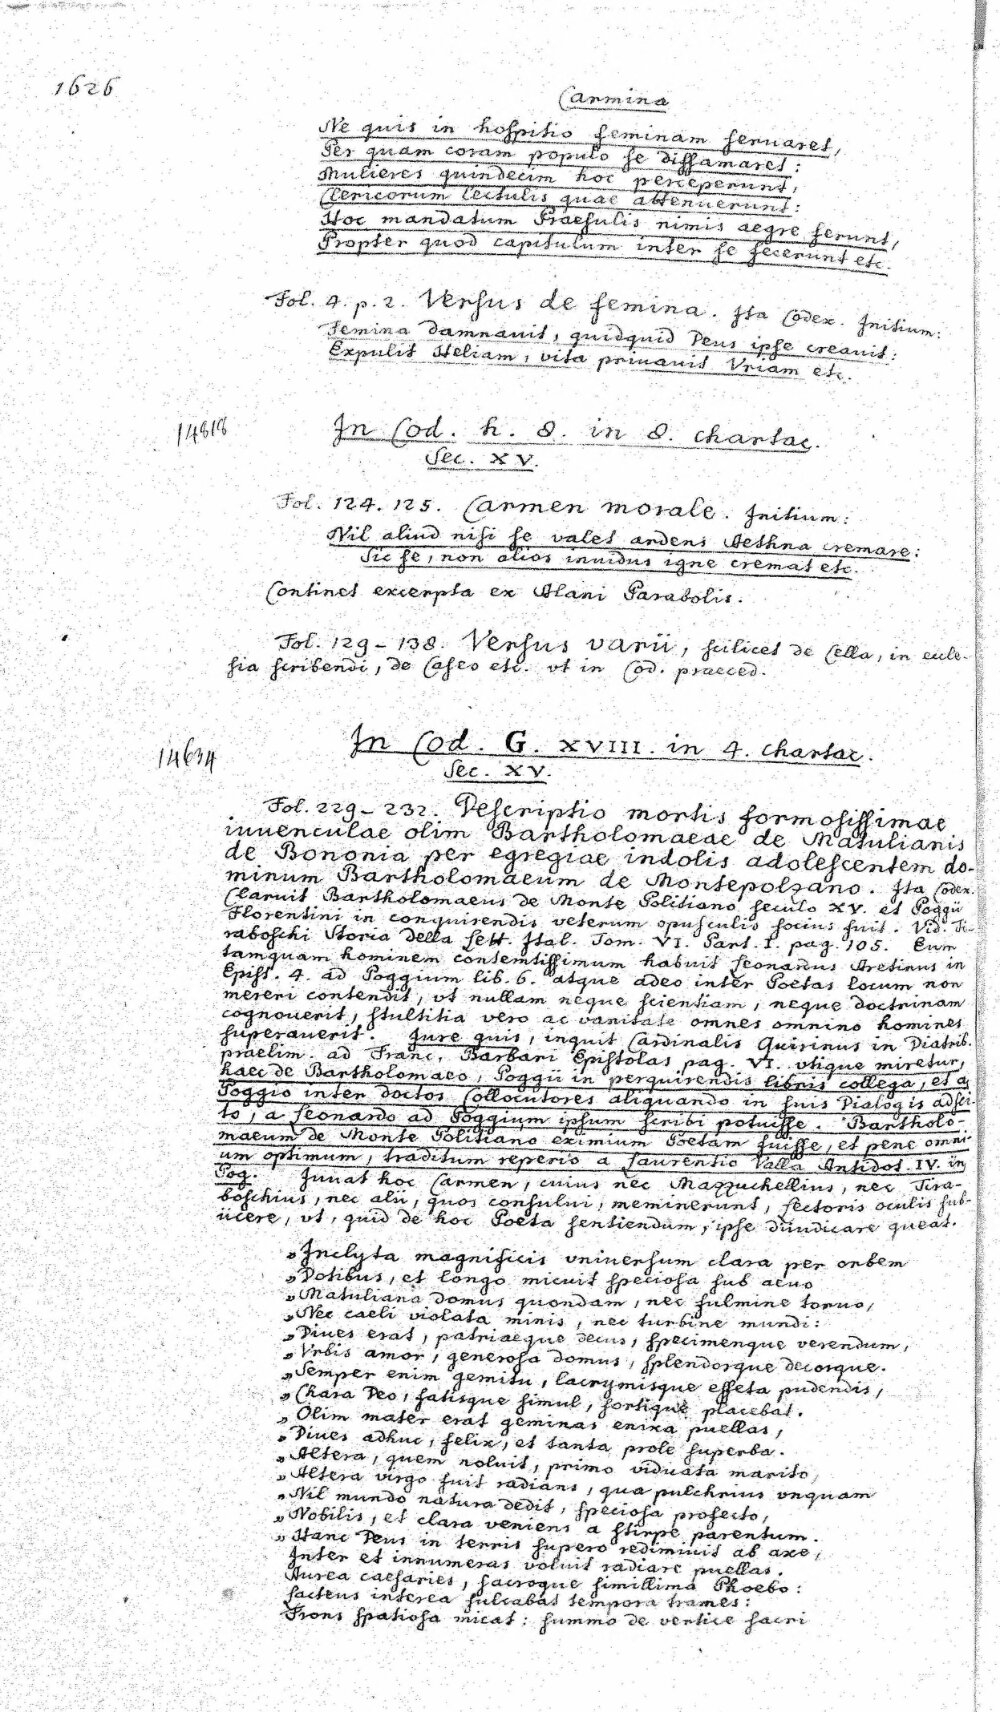 1626
Carmina
Ne quis in hospitio feminam servaret,
Per quam coram populo se diffamaret:
Mulieres quindecim hoc perceperunt,
Clericorum lectulis quae attenuerunt:
Hoc mandatum Praesulis nimis aegre ferunt,
Propter quod capitulum inter se fecerunt etc.
Fol. 4. p. 2. Versus de femina. Ita Codex. Initium:
Femina damnavit, quidquid Deus ipse creavit:
Expulit Heliam, vita privavit Vriam etc.
14818
In Cod. h. 8. in 8. chartac.
Sec. XV.
Fol. 124. 125. Carmen morale. Initium:
Nil aliud nisi se valet ardens Aethna cremare:
Sic se, non alios invidus igne cremat etc.
Continet excerpta ex Alani Parabolis.
Fol. 129 - 138. Versus varii, scilicet de Cella, in eccle-
sia scribendi, de Caseo etc. vt in Cod. praeced.
14634
In Cod. G. XVIII. in 4. chartac.
Sec. XV.
Fol. 229 - 232. Descriptio mortis formosissimae
iuvenculae olim Bartholomaeae de Matulianis
de Bononia per egregiae indolis adolescentem do-
minum Bartholomaeum de Montepolzano. Ita Codex.
Claruit Bartholomaeus de Monte Politiano seculo XV. et Poggii
Florentini in conquirendis veterum opusculis socius fuit. Vid. Ti-
raboschi Storia della Lett. Ital. Tom. VI. Part. I. pag. 105. Eum
tamquam hominem contemtissimum habuit Leonardus Aretinus in
Epist. 4. ad Poggium lib. 6. atque adeo inter Poetas locum non
mereri contendit, vt nullam neque scientiam, neque doctrinam
cognoverit, stultitia vero ac vanitate omnes omnino homines
superaverit. Iure quis, inquit Cardinalis Quirinus in Diatrib.
praelim. ad Franc. Barbari Epistolas pag. VI. vtique miretur,
haec de Bartholomaeo, Poggii in perquirendis libris collega, et a
Poggio inter doctos Collocutores aliquando in suis Dialogis adsci-
to, a Leonardo ad Poggium ipsum scribi potuisse. Bartholo-
maeum de Monte Politiano eximium Poetam fuisse, et pene omni-
um optimum, traditum reperio a Laurentio Valla Antidot. IV. in
Pog. Iuvat hoc Carmen, cuius nec Mazzuchellius, nec Tira-
boschius, nec alii, quos consului, meminerunt, Lectoris oculis sub-
iicere, vt, quid de hoc Poeta sentiendum, ipse diiudicare queat.
„Inclyta magnificis vniversum clara per orbem
„Dotibus, et longo micuit speciosa sub aevo
„Matuliana domus quondam, nec fulmine torvo,
„Nec caeli violata minis, nec turbine mundi:
„Dives erat, patriaeque decus, specimenque verendum,
„Vrbis amor, generosa domus, splendorque decorque.
„Semper enim gemitu, lacrymisque effeta pudendis,
„Chara Deo, fatisque simul, sortique placebat.
„Olim mater erat geminas enixa puellas,
„Dives adhuc, felix, et tanta prole superba.
„Altera, quem noluit, primo viduata marito,
„Altera virgo fuit radians, qua pulchrius vnquam
„Nil mundo natura dedit, speciosa profecto,
„Nobilis, et clara veniens a stirpe parentum.
„Hanc Deus in terris supero redimivit ab axe,
Inter et innumeras voluit radiare puellas.
Aurea caesaries, sacroque simillima Phoebo:
Lacteus interea sulcabat tempora trames:
Frons spatiosa micat: summo de vertice sacri